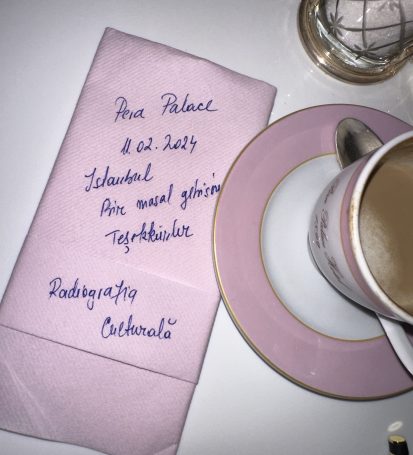 Pera Palace
11.02.2024
Istanbul
Bir masal gibisin
Teşekkürler
Radiografia
Culturală